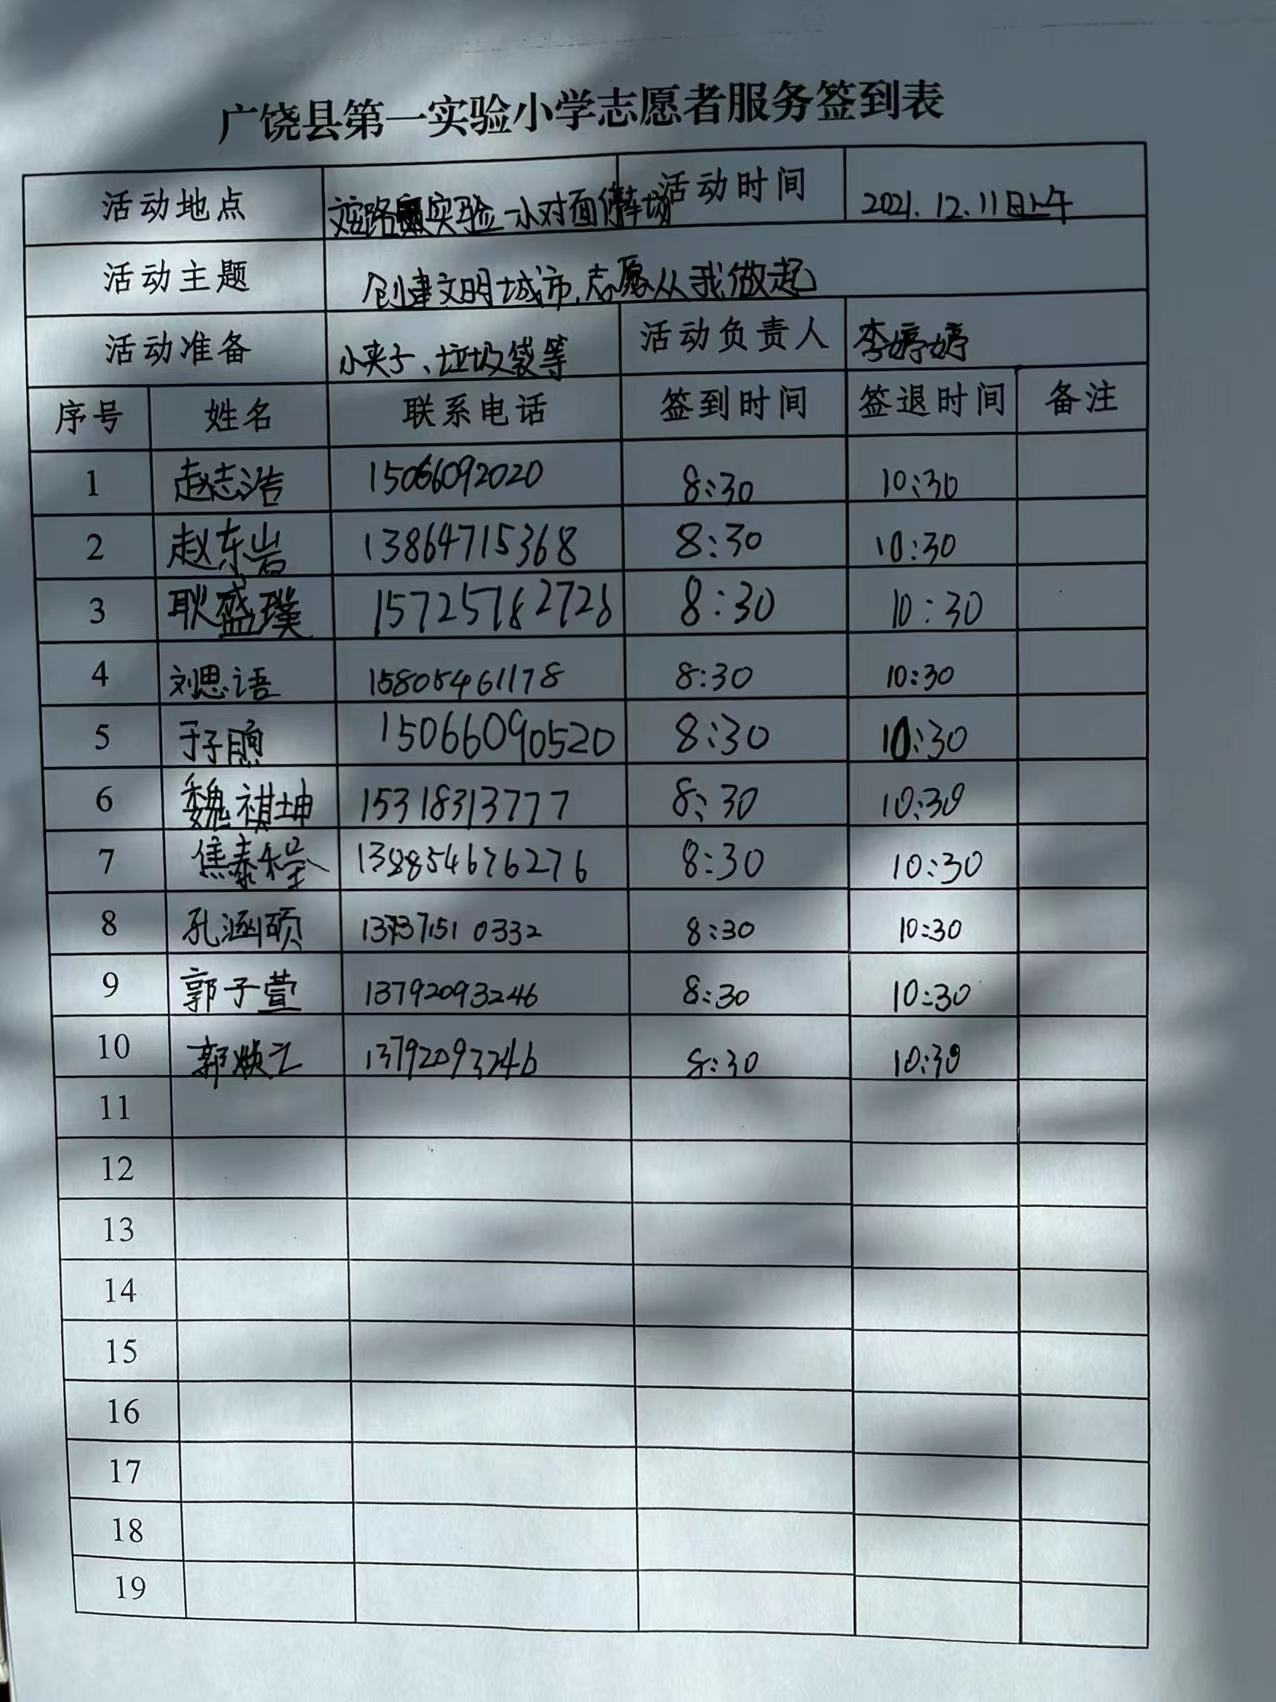 广饶县第一实验小学志愿者服务签到表
活动地点 文安路实验一小对面停车场 活动时间 2021.12.11日上午
活动主题 创建文明城市,志愿从我做起
活动准备 小夹子、垃圾袋等 活动负责人 李婷婷
序号 姓名 联系电话 签到时间 签退时间 备注
1 赵志浩 15066092020 8:30 10:30
2 赵东岩 13864715368 8:30 10:30
3 耿盛璞 15725782728 8:30 10:30
4 刘思语 15805461178 8:30 10:30
5 于子 15066090520 8:30 10:30
6 魏祺坤 15318313777 8:30 10:30
7 焦泰 138854676276 8:30 10:30
8 孔涵硕 8:30 10:30
9 郭子萱 13792093246 8:30 10:30
10 郭 13792093246 8:30 10:30
11
12
13
14
15
16
17
18
19